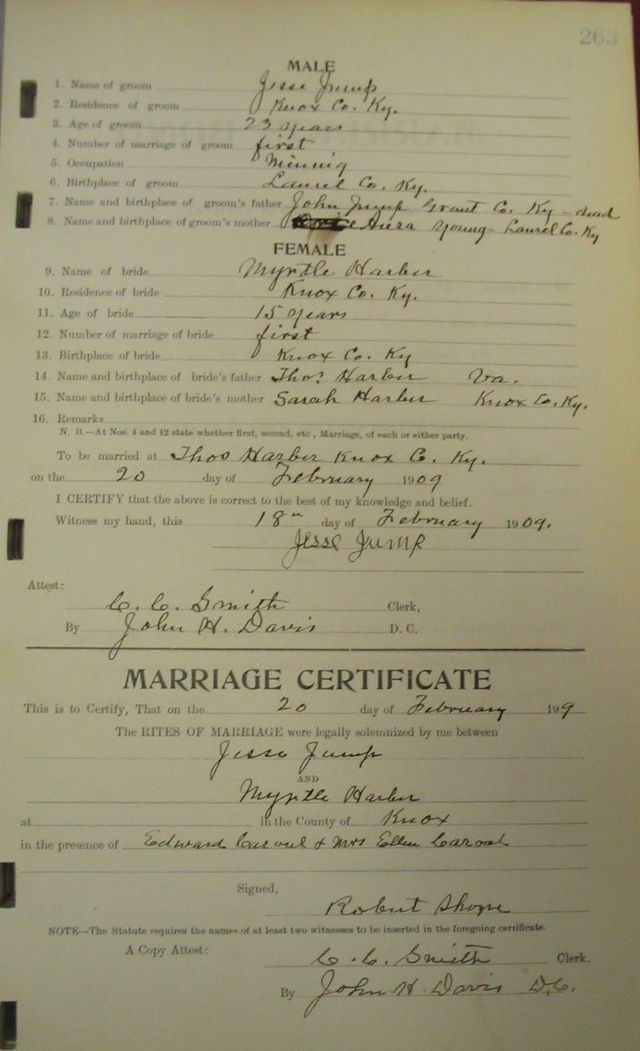 263
MALE
1. Name of groom Jesse Jump
2. Residence of groom Knox Co. Ky.
3. Age of groom 23 years
4. Number of marriage of groom first
5. Occupation Minnig
6. Birthplace of groom Laurel Co. Ky.
7. Name and birthplace of groom's father John Jump Grant Co. Ky - dead
8. Name and birthplace of groom's mother Young - Laurel Co. Ky
FEMALE
9. Name of bride Myrtle Harber
10. Residence of bride Knox Co. Ky.
11. Age of bride 15 years
12. Number of marriage of bride first
13. Birthplace of bride Knox Co. Ky
14. Name and birthplace of bride's father Thos Harber Va.
15. Name and birthplace of bride's mother Sarah Harber Knox Co. Ky.
16. Remarks
N. B.—At Nos. 4 and 12 state whether first, second, etc., Marriage, of each or either party.
To be married at Thos Harber Knox C. Ky.
on the 20 day of February 1909
I CERTIFY that the above is correct to the best of my knowledge and belief.
Witness my hand, this 18" day of February 1909.
Jesse Jump
Attest:
C. C. Smith Clerk,
By John H. Davis D. C.
MARRIAGE CERTIFICATE
This is to Certify, That on the 20 day of February 199
The RITES OF MARRIAGE were legally solemnized by me between
Jesse Jump
AND
Myrtle Harber
at in the County of Knox
in the presence of Edward & Mrs Ellen
Signed,
Robert Shope
NOTE—The Statute requires the names of at least two witnesses to be inserted in the foregoing certificate.
A Copy Attest:
C. C. Smith Clerk.
By John H. Davis D.C.